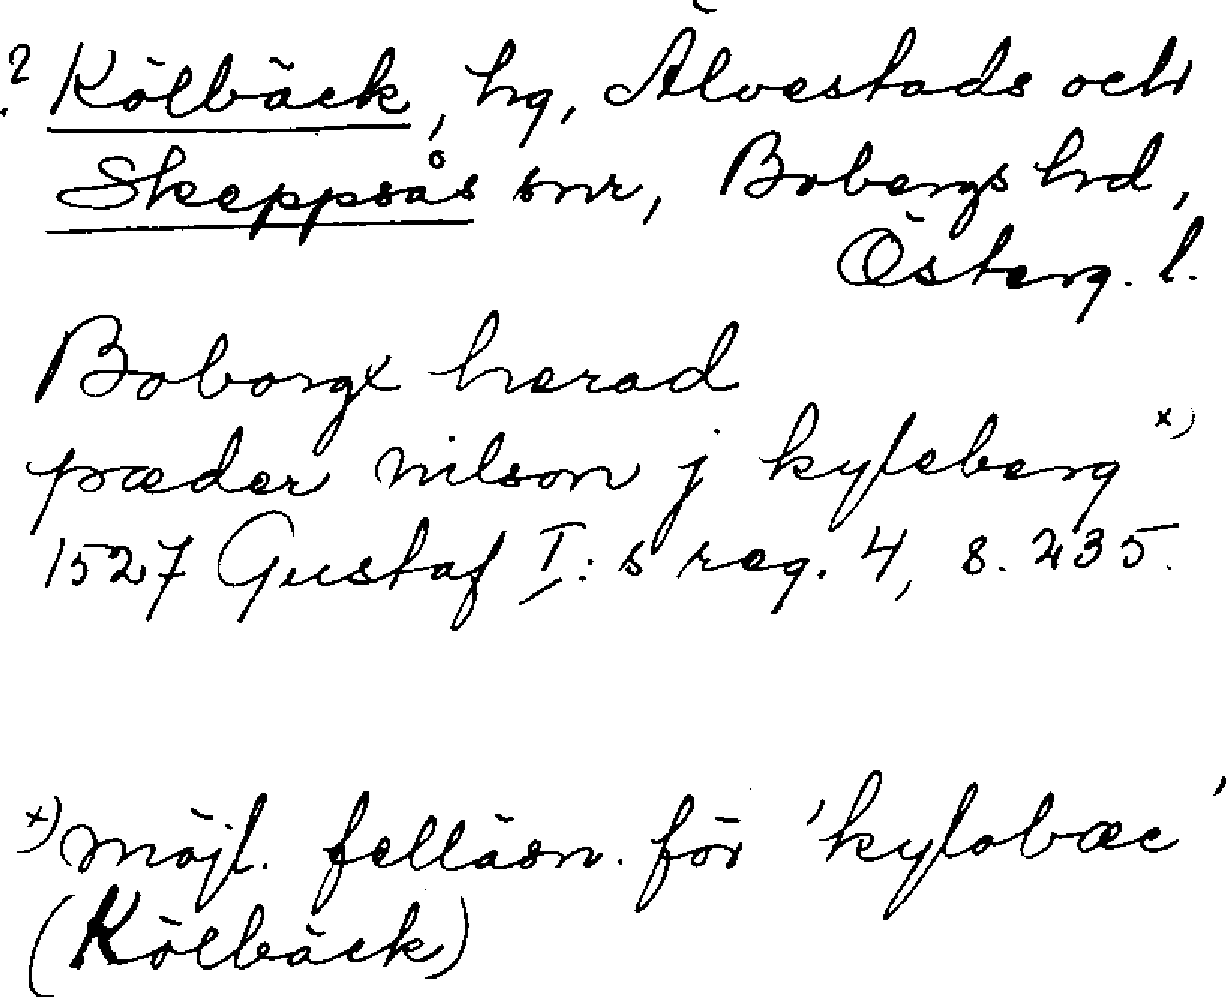 ? Kölbäck, hg, Älvestads och
Skeppsås snr, Bobergs hd,
Österg. l.
Boborgx herad
pæder nilson j kyleberg x)
1527 Gustaf I:s reg. 4, s. 235.
x) möjl. felläsn. för 'kylebæc'
(Kölbäck)